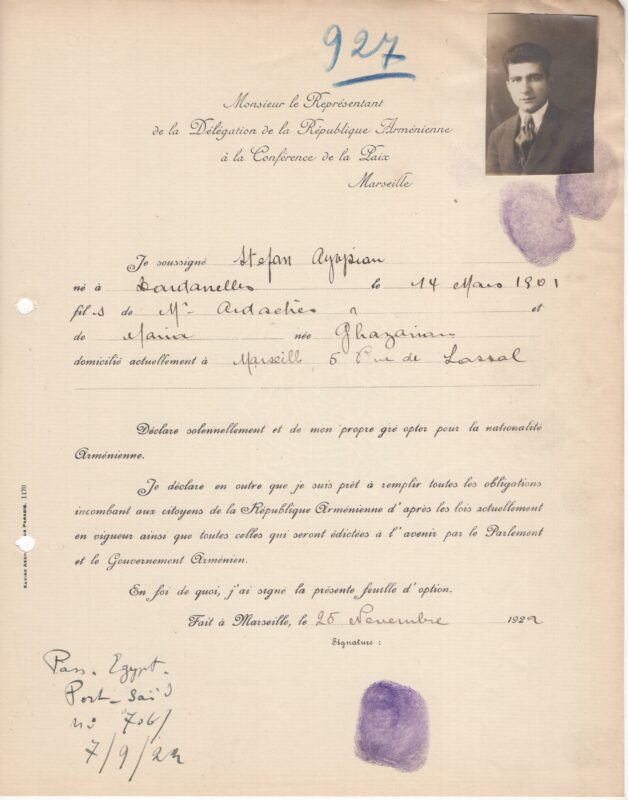 927
Monsieur le Représentant
de la Délégation de la République Arménienne
à la Conférence de la Paix
Marseille
Je soussigné Stefan Ayopian
né à Dardanelles le 14 Mars 1901
fils de Mr Ardachès et
de Maria née Ghazarian
domicilié actuellement à Marseill 5 Rue de Lassal
Déclare solennellement et de mon propre gré opter pour la nationalité
Arménienne.
Je déclare en outre que je suis prêt à remplir toutes les obligations
incombant aux citoyens de la République Arménienne d'après les lois actuellement
en vigueur ainsi que toutes celles qui seront édictées à l'avenir par le Parlement
et le Gouvernement Arménien.
En foi de quoi, j'ai signé la présente feuille d'option.
Fait à Marseille, le 25 Novembre 1922
Signature :
Pass. Egypt.
Port-Saïd
no 706/
7/9/22
1470